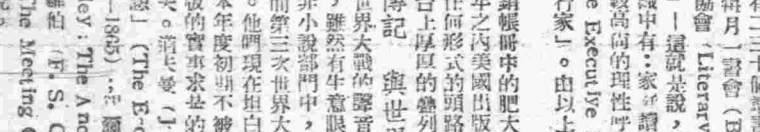 有二三十個讀書
每月一書會（B
協會（Literary
——這就是說，
識中有：家好讀
較高尚的理性呼
e Executive
行家」。由以上
銷帳冊中的肥大
年之內美國出版
任何形式的頭路
台上厚厚的臺列
傳記 與世界
世界大戰的聲音
，雖然有生意眼
非小說部門中，
前第三次世界大
。他們現在坦白
本年度初期不被
版的實事求是的
夫。浩夫曼（J.
想」（The E-c
—1865）
ley: The Anc
（F. S. C
The Meeting